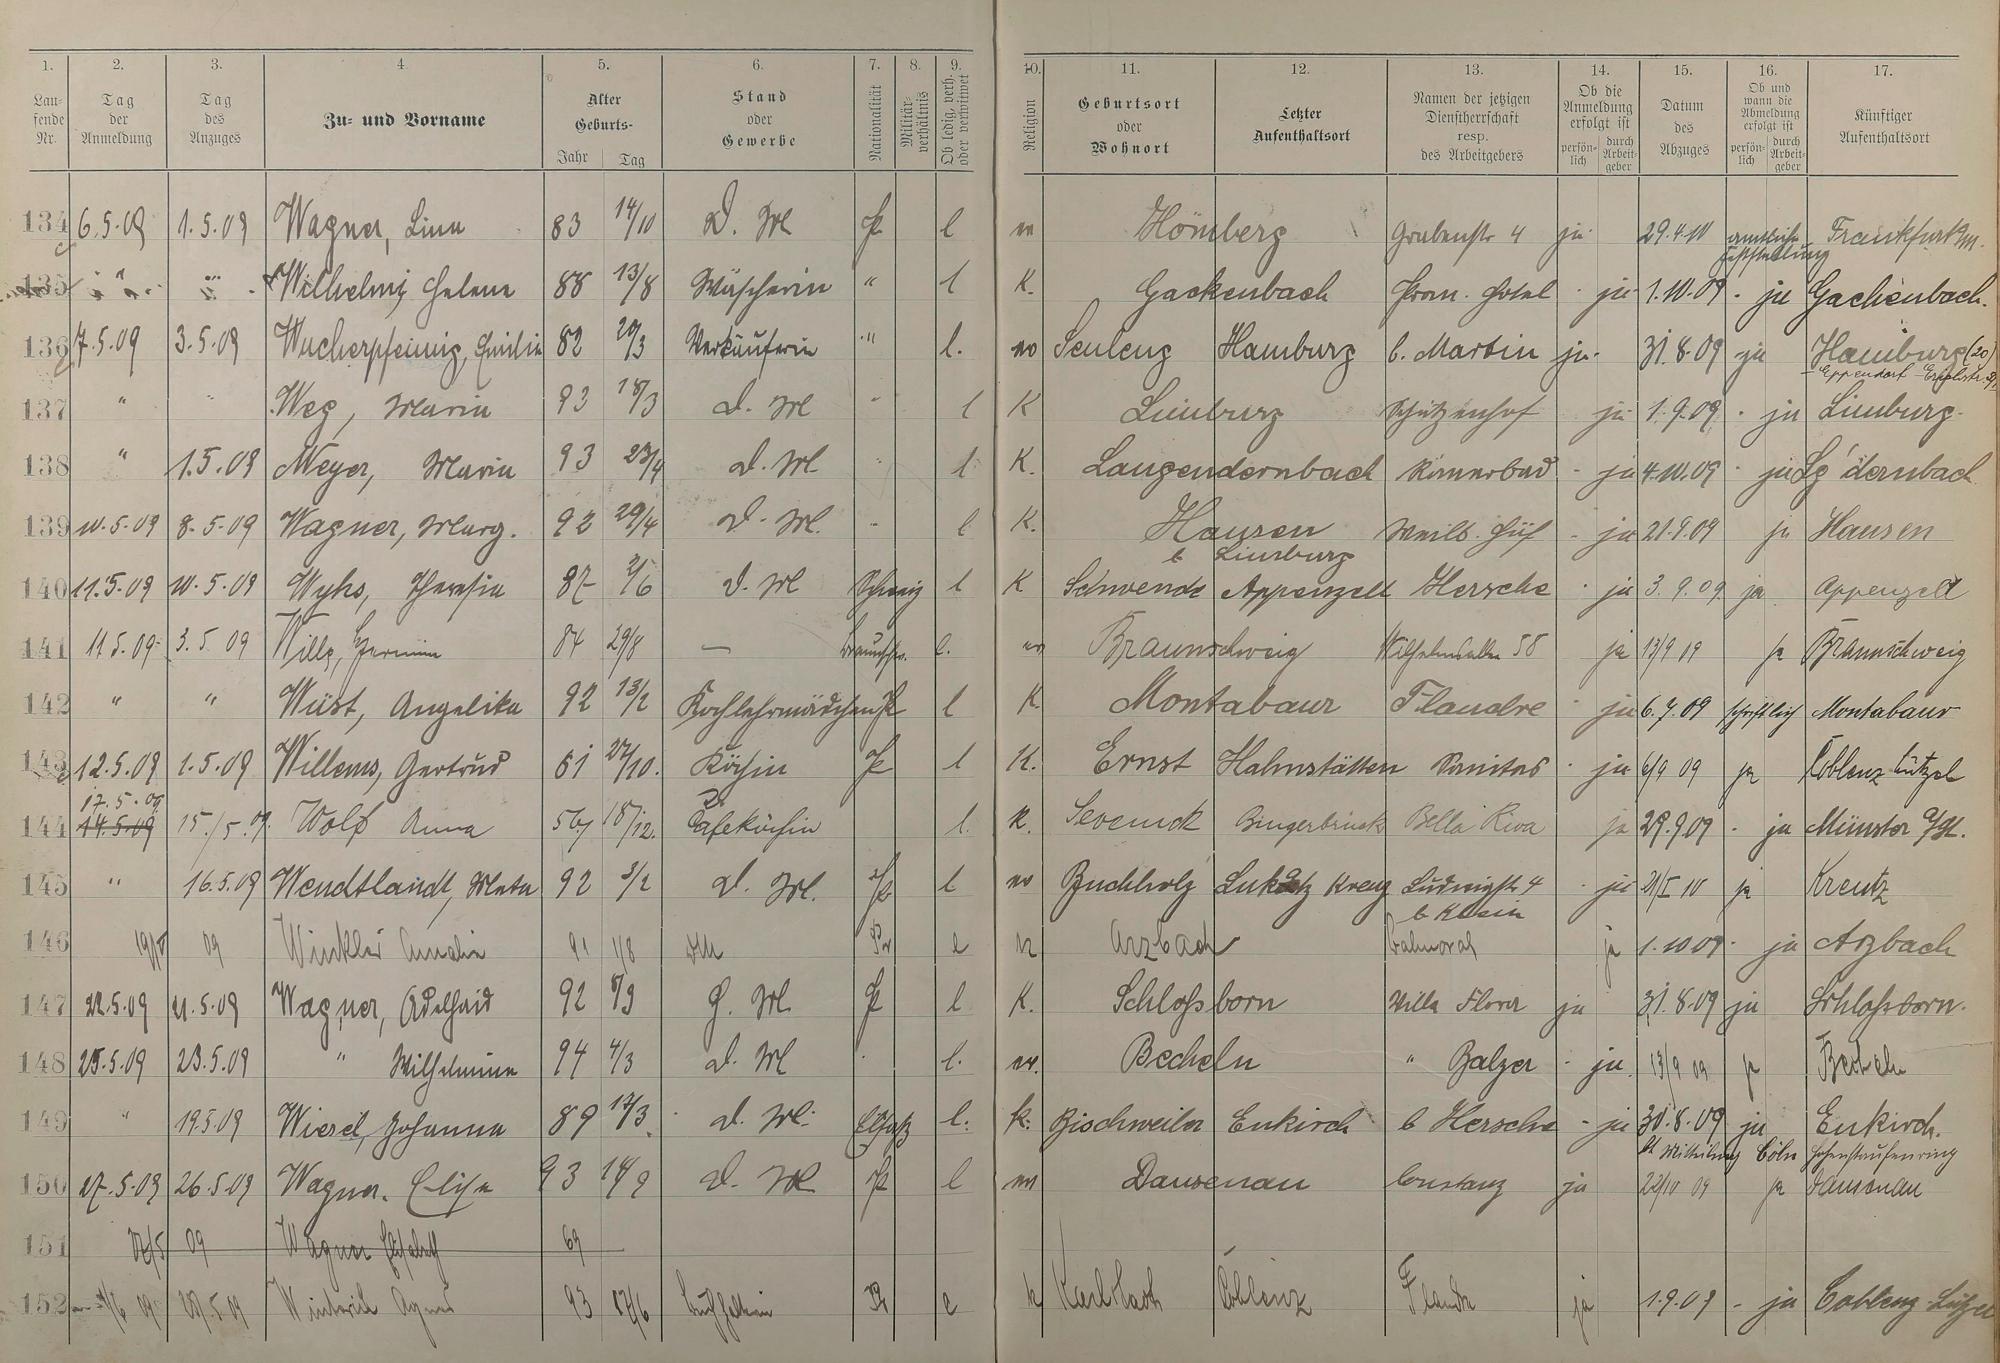 1. 2. 3. 4. 5. 6. 7. 8. 9. 10. 11. 12. 13. 14. 15. 16. 17.
Laufende Nr. Tag der Anmeldung Tag des Anzuges Zu- und Vorname Alter Geburts- Jahr Tag Stand oder Gewerbe Nationalität Militärverhältnis Ob ledig, verh. oder verwitwet Religion Geburtsort oder Wohnort Letzter Aufenthaltsort Namen der jetzigen Dienstherrschaft resp. des Arbeitgebers Ob die Anmeldung erfolgt ist persönlich durch Arbeitgeber Datum des Abzuges Ob und wann die Abmeldung erfolgt ist persönlich durch Arbeitgeber Künftiger Aufenthaltsort
134 6.5.09 1.5.09 Wagner, Lina 83 14/10 D. M Pr l Hömberg Grabenstr 4 ja 29.4.10 amtliche Feststellung Frankfurt a/m.
135 " " Wilhelmi Helene 88 13/8 Wäscherin " l K. Gackenbach Prom. Hotel - ja 1.10.09 - ja Gackenbach.
136 7.5.09 3.5.09 Wucherpfennig, Emilie 82 20/3 Verkäuferin " l. Hamburg b. Martin ja 31.8.09 ja Hamburg (20) Eppendorf
137 " " Weg, Maria 93 18/3 D. M " l K Limburg Schützenhof ja 1.9.09 - ja Limburg
138 " 1.5.09 Meyer, Maria 93 23/4 D. M " l K. Langendernbach Römerbad - ja 4.10.09 - ja Lg'dernbach
139 10.5.09 8.5.09 Wagner, Marg. 92 29/4 D. M. " l K. Hausen b Limburg - ja 21.9.09 ja Hausen
140 11.5.09 10.5.09 Wyhs, Theresia 87 2/6 D. M Schweiz l K Schwende Appenzell Hersche - ja 3.9.09 ja Appenzell
141 11.5.09 3.5.09 Wills, Hermine 84 29/8 — Braunschw. l. Braunschweig Wilhelmsallee 58 ja 13/9 09 ja Braunschweig
142 " " Wüst, Angelika 92 13/2 Kochlehrmädchen Pr l K Montabaur Flandre - ja 6.7.09 schriftlich Montabaur
143 12.5.09 1.5.09 Willems, Gertrud 61 27/10. Köchin Pr l K. Ernst Hahnstätten Sanitas - ja 6/9 09 ja Coblenz Lützel
144 17.5.09 14.5.09 15./5.09. Wolf Anna 18/12. Cafeköchin l. K. Sevenick Bingerbrück Bella Riva ja 29.9.09 - ja Münster a/St.
145 " 16.5.09 Wendtlandt, Meta 92 3/2 D. M. Pr l Buchholz Kreuz Ludwigstr 4 b Klein - ja 21/I 10 ja Kreutz
146 19/V 09 Winkler Amalie 91 1/8 DM Pr l K Arzbach Balmoral ja 1.10.09 - ja Arzbach
147 22.5.09 21.5.09 Wagner, Adelheid 92 8/9 H. M Pr l K. Schloßborn Villa Flora ja 31.8.09 ja Schloßborn.
148 25.5.09 23.5.09 " Wilhelmine 94 4/3 D. M l. Becheln " Balzer - ja 13/9 09 ja Becheln
149 " 19.5.09 Wiesel, Johanna 89 17/3 D. M. Elsaß l. K. Bischweiler Enkirch b Hersche - ja 30.8.09 ja Enkirch.
150 27.5.09 26.5.09 Wagner. Elise 93 14/9 D. M Pr l Dausenau Constanz ja 22/10 09 ja lt Mitteilung Cöln Hohenstaufenring Dausenau
151 27/5 09 Wagner Elisabeth 69
152 1/6 09 27.5.09 Agnes 93 17/6 Pr l K Coblenz Flandre ja 1.9.09 - ja Coblenz-Lützel